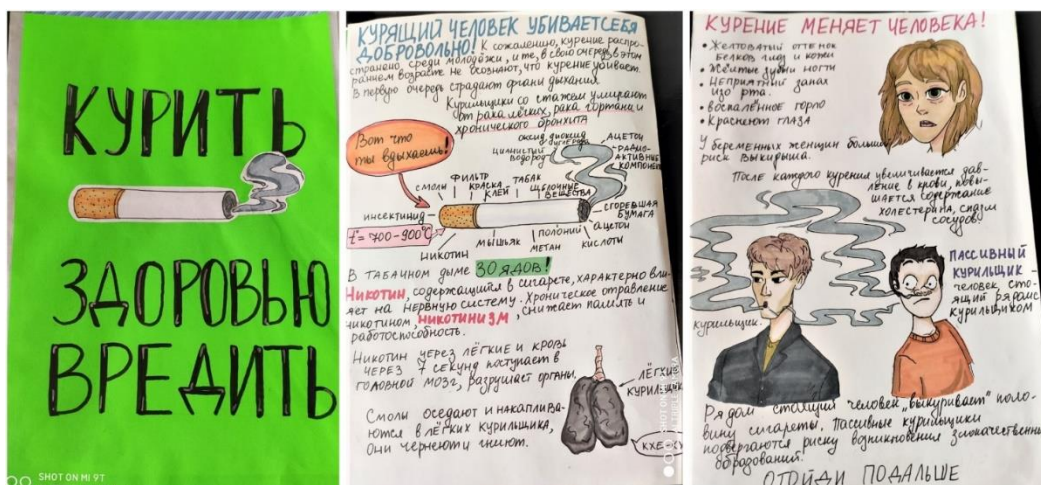 КУРИТЬ
ЗДОРОВЬЮ
ВРЕДИТЬ
SHOT ON MI 9T
КУРЯЩИЙ ЧЕЛОВЕК УБИВАЕТ СЕБЯ
ДОБРОВОЛЬНО! К сожалению, курение распро-
странено, среди молодёжи, и те, в свою очередь, в этом
раннем возрасте не осознают, что курение убивает.
В первую очередь страдают органы дыхания
Курильщики со стажем умирают
от рака лёгких, рака гортани и
хронического бронхита
Вот что
ты вдыхаешь!
оксид, диоксид
углерода
цианистый
водород
АЦЕТОН
РАДИО-
АКТИВНЫЕ
КОМПОНЕН
СМОЛЫ
ФИЛЬТР
КРАСКА
КЛЕЙ
ТАБАК
ЩЕЛОЧНЫЕ
ВЕЩЕСТВА
ИНСЕКТИЦИД
СГОРЕВШАЯ
БУМАГА
t°= 700-900°C
НИКОТИН
МЫШЬЯК
МЕТАН
ПОЛОНИЙ
АЦЕТОН
КИСЛОТЫ
В ТАБАЧНОМ ДЫМЕ 30 ЯДОВ!
НИКОТИН, содержащийся в сигарете, характерно вли-
яет на нервную систему. Хроническое отравление
никотином, НИКОТИНИЗМ, снижает память и
работоспособность.
Никотин через лёгкие и кровь
через 7 секунд поступает в
головной мозг, разрушает органы.
ЛЁГКИЕ
КУРИЛЬЩИК
Смолы оседают и накаплива-
ются в лёгких курильщика,
они чернеют и гниют.
КХЕ-КХ
КУРЕНИЕ МЕНЯЕТ ЧЕЛОВЕКА!
• Желтоватый оттенок
белков глаз и кожи
• Жёлтые зубы ногти
• Неприятный запах
изо рта.
• воспалённое горло
• Краснеют ГЛАЗА
У беременных женщин больше
риск выкидыша.
После каждого курения увеличивается дав-
ление в крови, повы-
шается содержание
холестерина, спазм
сосудов.
ПАССИВНЫЙ
КУРИЛЬЩИК
человек, сто-
ящий рядом с
курильщиком
курильщик.
Рядом стоящий человек „выкуривает" поло-
вину сигареты. Пассивные курильщики
подвергаются риску возникновения злокачественн
образований.
ОТОЙДИ ПОДАЛЬШЕ